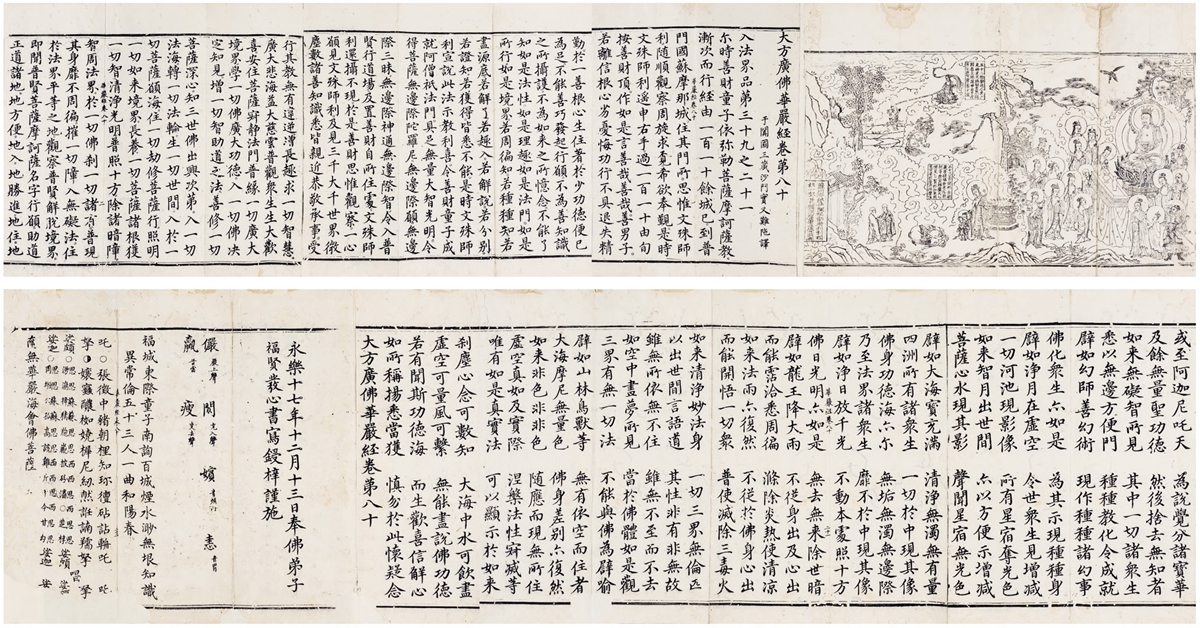 大方廣佛華嚴經卷第八十
于闐國三藏沙門實叉難陁譯
入法界品第三十九之二十一
尒時善財童子依弥勒菩薩摩訶薩教
漸次而行經由一百一十餘城已到普
門國蘇摩那城住其門所思惟文殊師
利随順觀察周旋求覓希欲奉覲是時
文殊師利遥申右手過一百一十由旬
按善財頂作如是言善哉善哉善男子
若離信根心劣憂悔功行不具退失精
勤於一善根心生住著於少功德便已
為足不能善巧發起行願不為善知識
之所攝護不為如来之所憶念不能了
知如是法性如是理趣如是法門如是
所行如是境界若周徧知若種種知若
盡源底若解了若趣入若解說若分別
若證知若獲得皆悉不能是時文殊師
利宣說此法示教利喜令善財童子成
就阿僧祇法門具足無量大智光明令
得菩薩無邊際陀羅尼無邊際願無邊
際三昧無邊際神通無邊際智令入普
賢行道場及置善財自所住處文殊師
利還攝不現於是善財思惟觀察一心
願見文殊師利及見三千大千世界微
塵數諸善知識悉皆親近恭敬承事受
行其教無有違逆增長趣求一切智慧
廣大悲海益大慈雲普觀衆生生大歡
喜安住菩薩寂静法門普縁一切廣大
境界學一切佛廣大功德入一切佛决
定知見增一切智助道之法善修一切
菩薩深心知三世佛出興次第入一切
法海轉一切法輪生一切世間入於一
切菩薩願海住一切劫修菩薩行照明
一切如来境界長養一切菩薩諸根獲
一切智清净光明普照十方除諸暗障
智周法界於一切佛刹一切諸有普現
其身靡不周徧摧一切障入無礙法住
於法界平等之地觀察普賢解脱境界
即聞普賢菩薩摩訶薩名字行願助道
正道諸地地方便地入地勝進地住地
或至阿迦尼吒天 為說覺分諸寶華
及餘無量聖功德 然後捨去無知者
如来無礙智所見 其中一切諸衆生
悉以無邊方便門 種種教化令成就
譬如幻師善幻術 現作種種諸幻事
佛化衆生亦如是 為其示現種種身
譬如净月在虛空 令世衆生見增減
一切河池現影像 所有星宿奪光色
如来智月出世間 亦以方便示增減
菩薩心水現其影 聲聞星宿無光色
譬如大海寶充滿 清净無濁無有量
四洲所有諸衆生 一切於中現其像
佛身功德海亦尒 無垢無濁無邊際
乃至法界諸衆生 靡不於中現其影
譬如净日放千光 不動本處照十方
佛日光明亦如是 無去無来除世暗
譬如龍王降大雨 不從身出及心出
而能霑洽悉周徧 滌除炎熱使清涼
如来法雨亦復然 不從於佛身心出
而能開悟一切衆 普使滅除三毒火
如来清净妙法身 一切三界無倫匹
以出世間言語道 其性非有非無故
雖無所依無不住 雖無不至而不去
如空中畫夢所見 當於佛體如是觀
三界有無一切法 不能與佛為譬喻
譬如山林鳥獸等 無有依空而住者
大海摩尼無量色 佛身差別亦復然
如来非色非非色 随應而現無所住
虛空真如及實際 涅槃法性寂滅等
唯有如是真實法 可以顯示於如来
刹塵心念可數知 大海中水可飲盡
虛空可量風可繫 無能盡說佛功德
若有聞斯功德海 而生歡喜信解心
如所稱揚悉當獲 慎勿於此懷疑念
大方廣佛華嚴經卷第八十
永樂十七年十二月十三日奉佛弟子
福賢發心書寫鋟梓謹施
福城東際童子南詢百城煙水渺無垠知識
異常倫五十三人一曲和陽春
華嚴海會佛菩薩